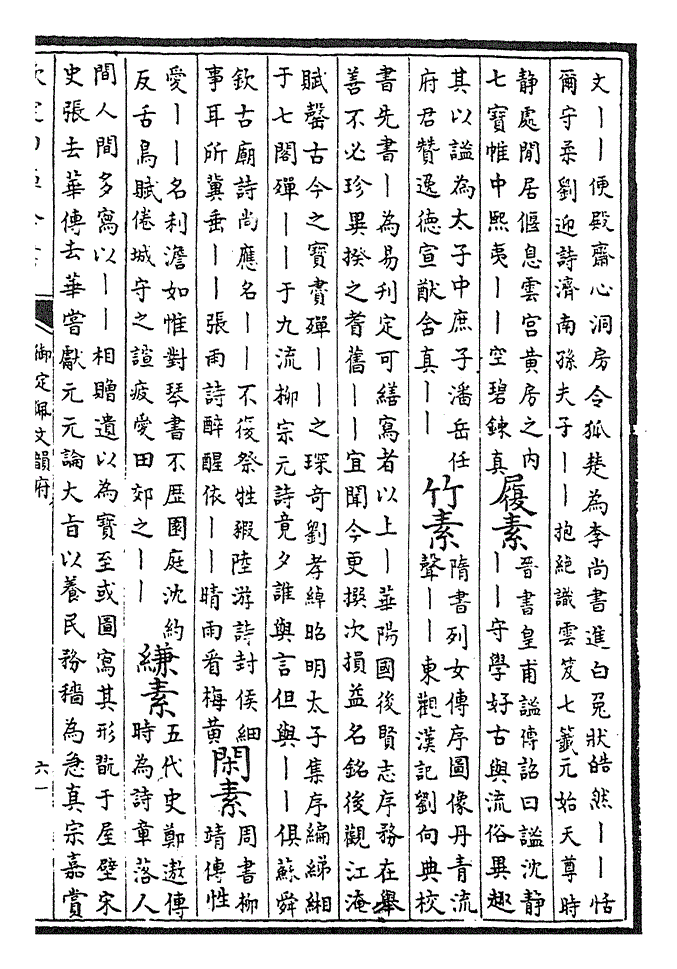 文丨丨便殿齋心洞房令狐楚為李尚書進白兔狀皓然丨丨恬
爾守柔劉迎詩濟南孫夫子丨丨抱絕識雲笈七籤元始天尊時
静處閒居偃息雲宫黄房之内
七寶帷中熙夷丨丨空碧鍊真
履素
晉書皇甫謐傳詔曰謐沈静
丨丨守學好古與流俗異趣
其以謐為太子中庶子潘岳任
府君贊逸德宣猷含真丨丨
竹素
隋書列女傳序圖像丹青流
聲丨丨東觀漢記劉向典校
書先書丨為易刋定可繕寫者以上丨華陽國後賢志序務在舉
善不必珍異揆之耆舊丨丨宜聞今更撰次損益名銘後觀江淹
賦罄古今之寶賚殫丨丨之琛奇劉孝綽昭明太子集序編綈緗
于七閣殫丨丨于九流柳宗元詩竟夕誰與言但與丨丨俱蘇舜
欽古廟詩尚應名丨丨不復祭牲豭陸游詩封侯細
事耳所冀垂丨丨張雨詩醉醒依丨丨晴雨看梅黄
閑素
周書柳
靖傳性
愛丨丨名利澹如惟對琴書不歴園庭沈約
反舌鳥賦倦城守之諠疲愛田郊之丨丨
縑素
五代史鄭遨傳
時為詩章落人
間人間多寫以丨丨相贈遺以為寶至或圖寫其形翫于屋壁宋
史張去華傳去華嘗獻元元論大旨以養民務穡為急真宗嘉賞
欽定四庫全書
御定佩文韻府
六一